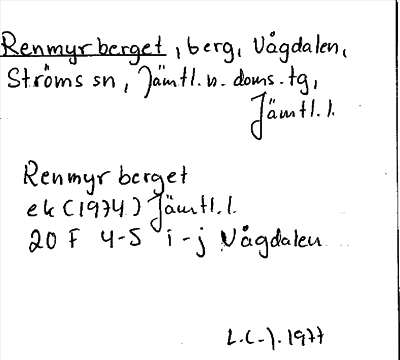 Renmyrberget, berg, Vågdalen,
Ströms sn, Jämtl. n. doms. tg,
Jämtl. l.
Renmyrberget
ek (1974) Jämtl. l.
20 F 4-5 i-j Vågdalen
L.C-j. 1977